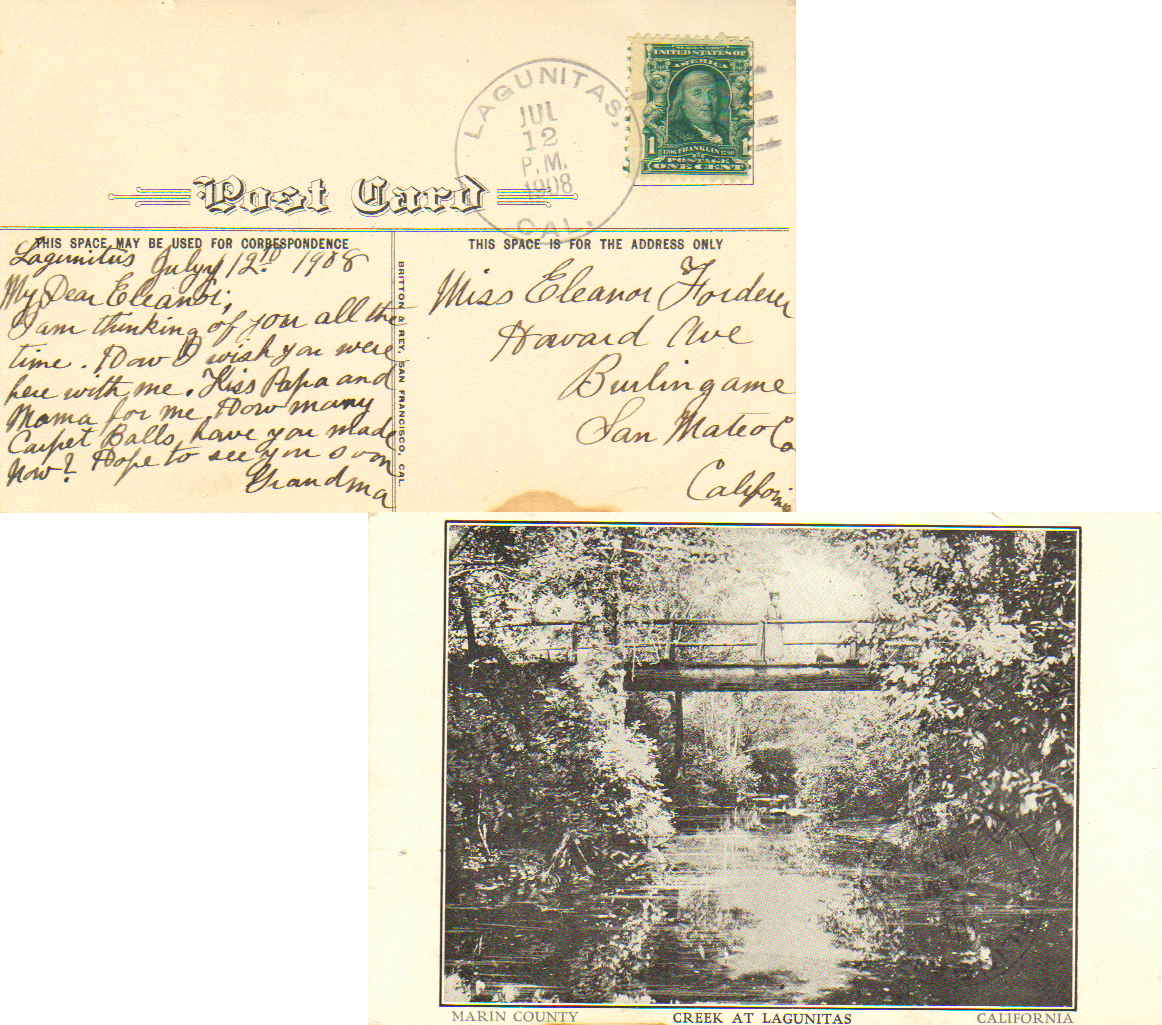 LAGUNITAS,
JUL
12
P.M.
1908
CAL.
SERIES 1902
UNITED STATES OF
AMERICA
1 1706 FRANKLIN 1790 1
POSTAGE
ONE CENT
Post Card
THIS SPACE MAY BE USED FOR CORRESPONDENCE
Lagunitas July 12th 1908
My Dear Eleanor,
I am thinking of you all the
time. How I wish you were
here with me. Kiss Papa and
Mama for me How many
Carpet Balls have you made
Now? Hope to see you soon
Grandma
BRITTON & REY, SAN FRANCISCO, CAL.
THIS SPACE IS FOR THE ADDRESS ONLY
Miss Eleanor Forderer
Howard Ave
Burlingame
San Mateo Co
California
MARIN COUNTY CREEK AT LAGUNITAS CALIFORNIA